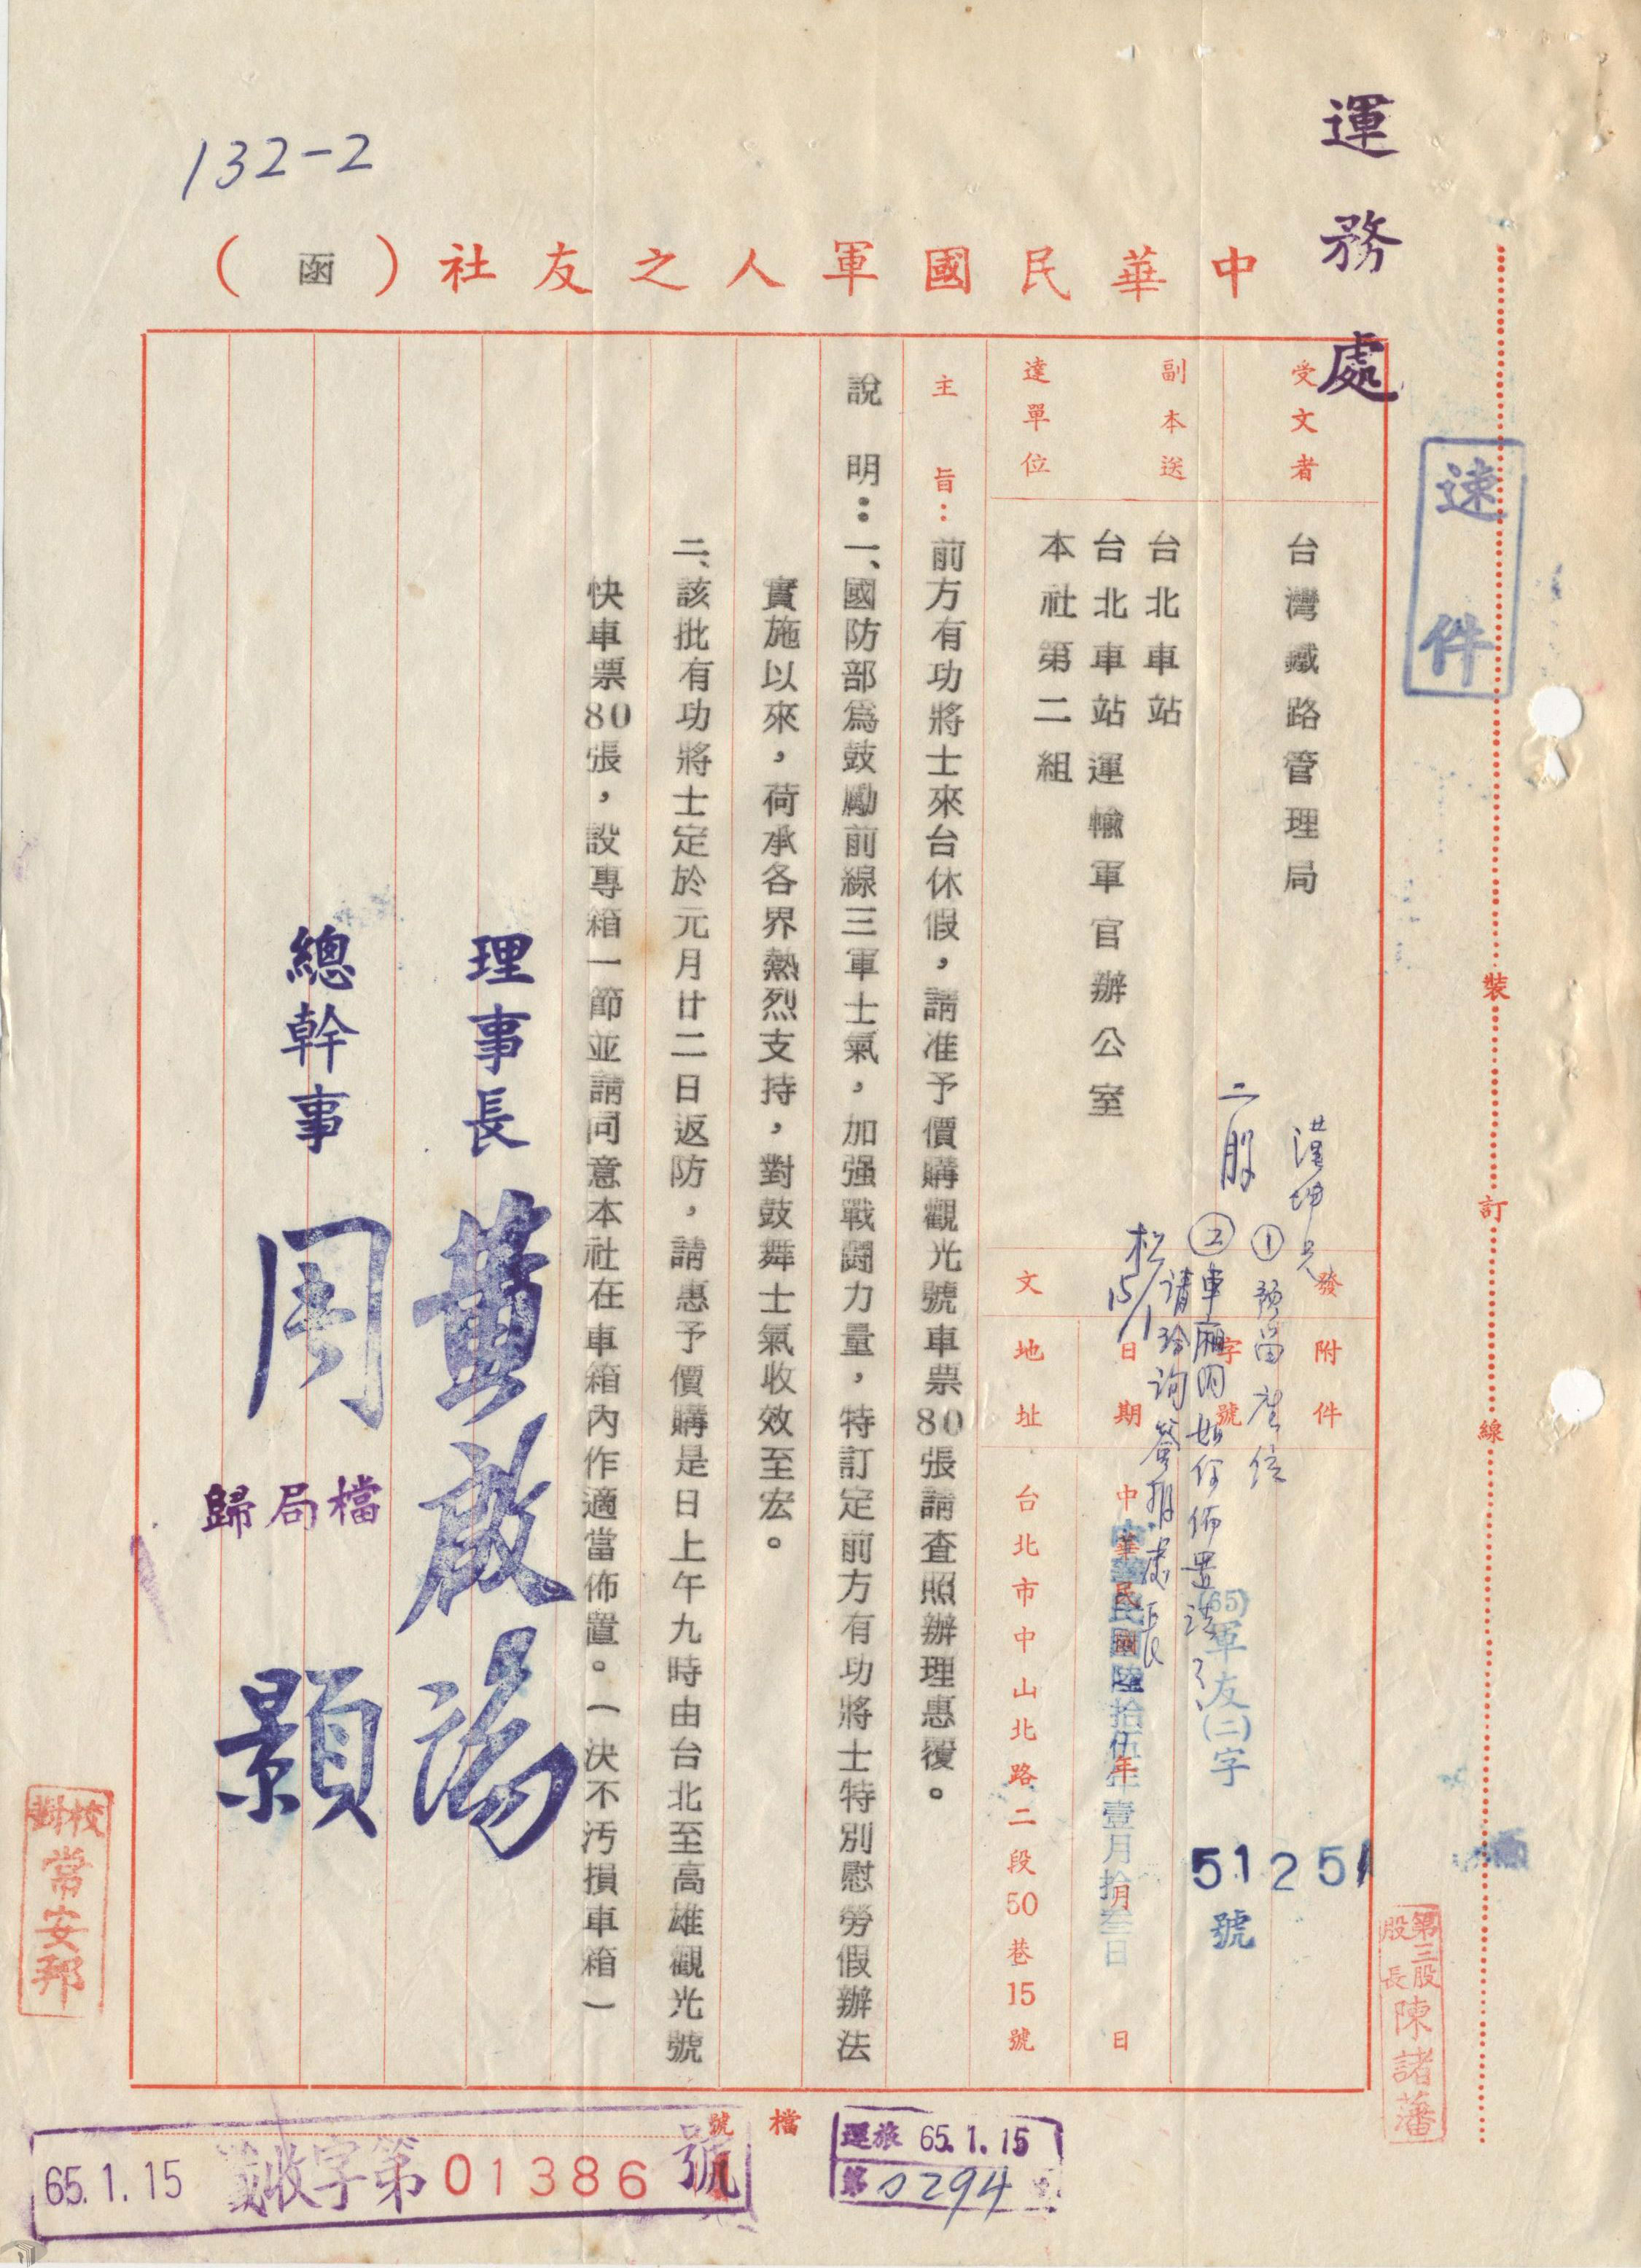 132-2
運務處
中華民國軍人之友社（函）
速件
裝訂線
受文者
台灣鐵路管理局
副本送達單位
台北車站
台北車站運輸軍官辦公室
本社第二組
發文
附件
字號
日期
地址
(65)軍友(二)字
51251
號
中華民國陸拾伍年壹月拾叁日
中華民國 年 月 日
台北市中山北路二段50巷15號
二股
①預留座位
②車廂內如何佈置請
松15/1
主旨：前方有功將士來台休假，請准予價購觀光號車票80張請查照辦理惠覆。
說明：一、國防部為鼓勵前線三軍士氣，加强戰鬪力量，特訂定前方有功將士特別慰勞假辦法
實施以來，荷承各界熱烈支持，對鼓舞士氣收效至宏。
二、該批有功將士定於元月廿二日返防，請惠予價購是日上午九時由台北至高雄觀光號
快車票80張，設專箱一節並請同意本社在車箱內作適當佈置。（決不污損車箱）
理事長 黃啟瑞
總幹事 周顥
歸局檔
校對 常安邦
第三股股長 陳諸藩
檔號
65.1.15 收字第01386號
運旅 65.1.15
第0294號